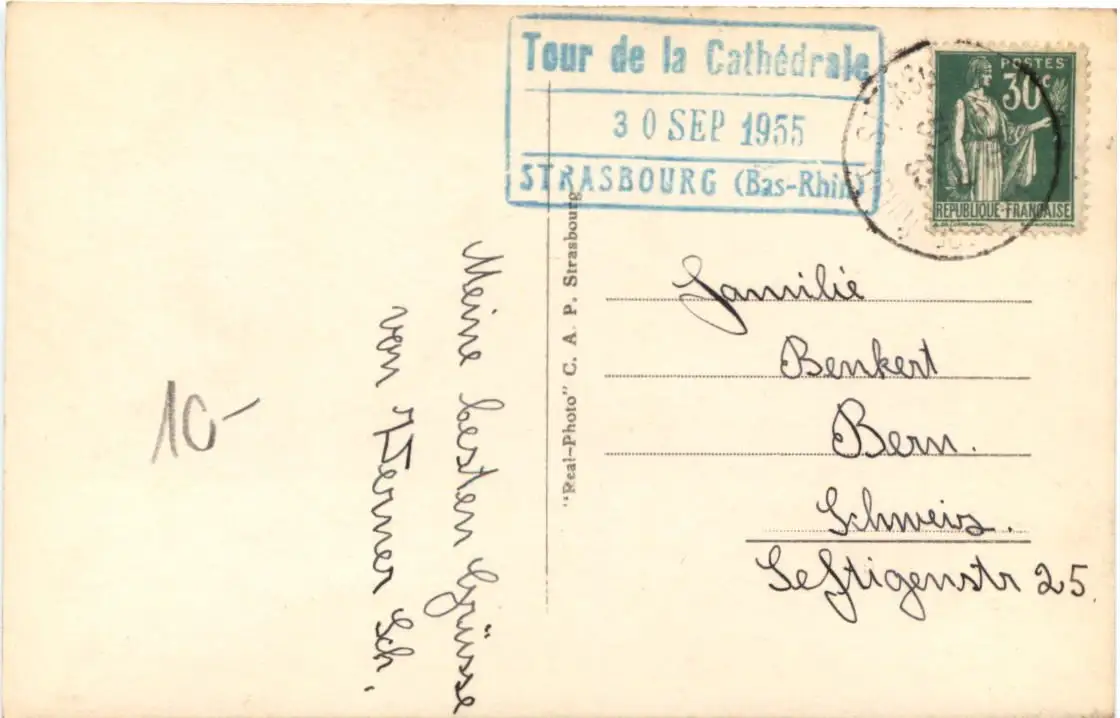 Tour de la Cathédrale
30 SEP 1955
STRASBOURG (Bas-Rhin)
POSTES
30c
REPUBLIQUE-FRANÇAISE
Meine besten Grüsse
von Werner Sch.
"Real-Photo" C. A. P. Strasbourg
Familie
Benkert
Bern.
Schweiz.
Seftigenstr 25.
10-